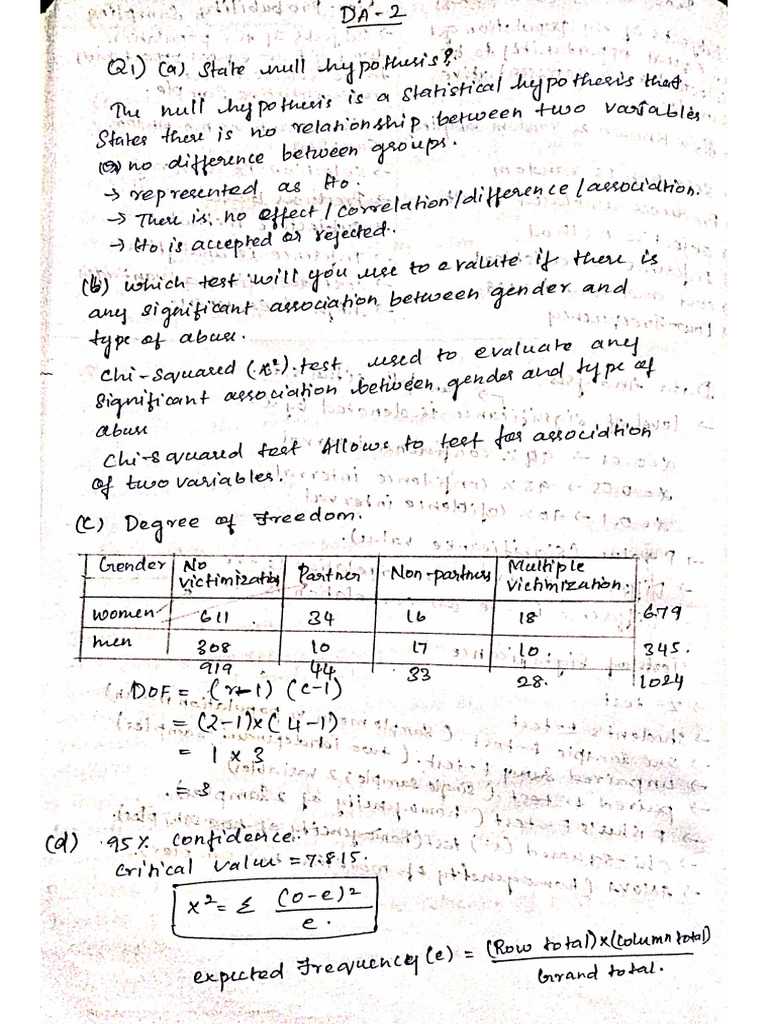 DA-2
Q1) (a) State null hypothesis?
The null hypothesis is a statistical hypothesis that
States there is no relationship between two variables
(or) no difference between groups.
→ represented as Ho.
→ There is no effect / correlation/difference / association.
→ Ho is accepted or rejected.
(b) which test will you use to evalute if there is
any significant association between gender and
type of abuse.
Chi-Squared (x²) test used to evaluate any
significant association between gender and type of
abuse
Chi-squared test Allows to test for association
of two variables.
(c) Degree of Freedom.
Gender No victimization Partner Non-partners Multiple victimization.
women 611 34 16 18 679
men 308 10 17 10. 345.
919 44 33 28. 1024
DOF = (r-1) (c-1)
= (2-1)x(4-1)
= 1 x 3
= 3
(d) 95% confidence.
Critical value = 7.815.
x² = Σ (o-e)² / e.
expected Frequency (e) = (Row total)x(Column total) / Grand total.